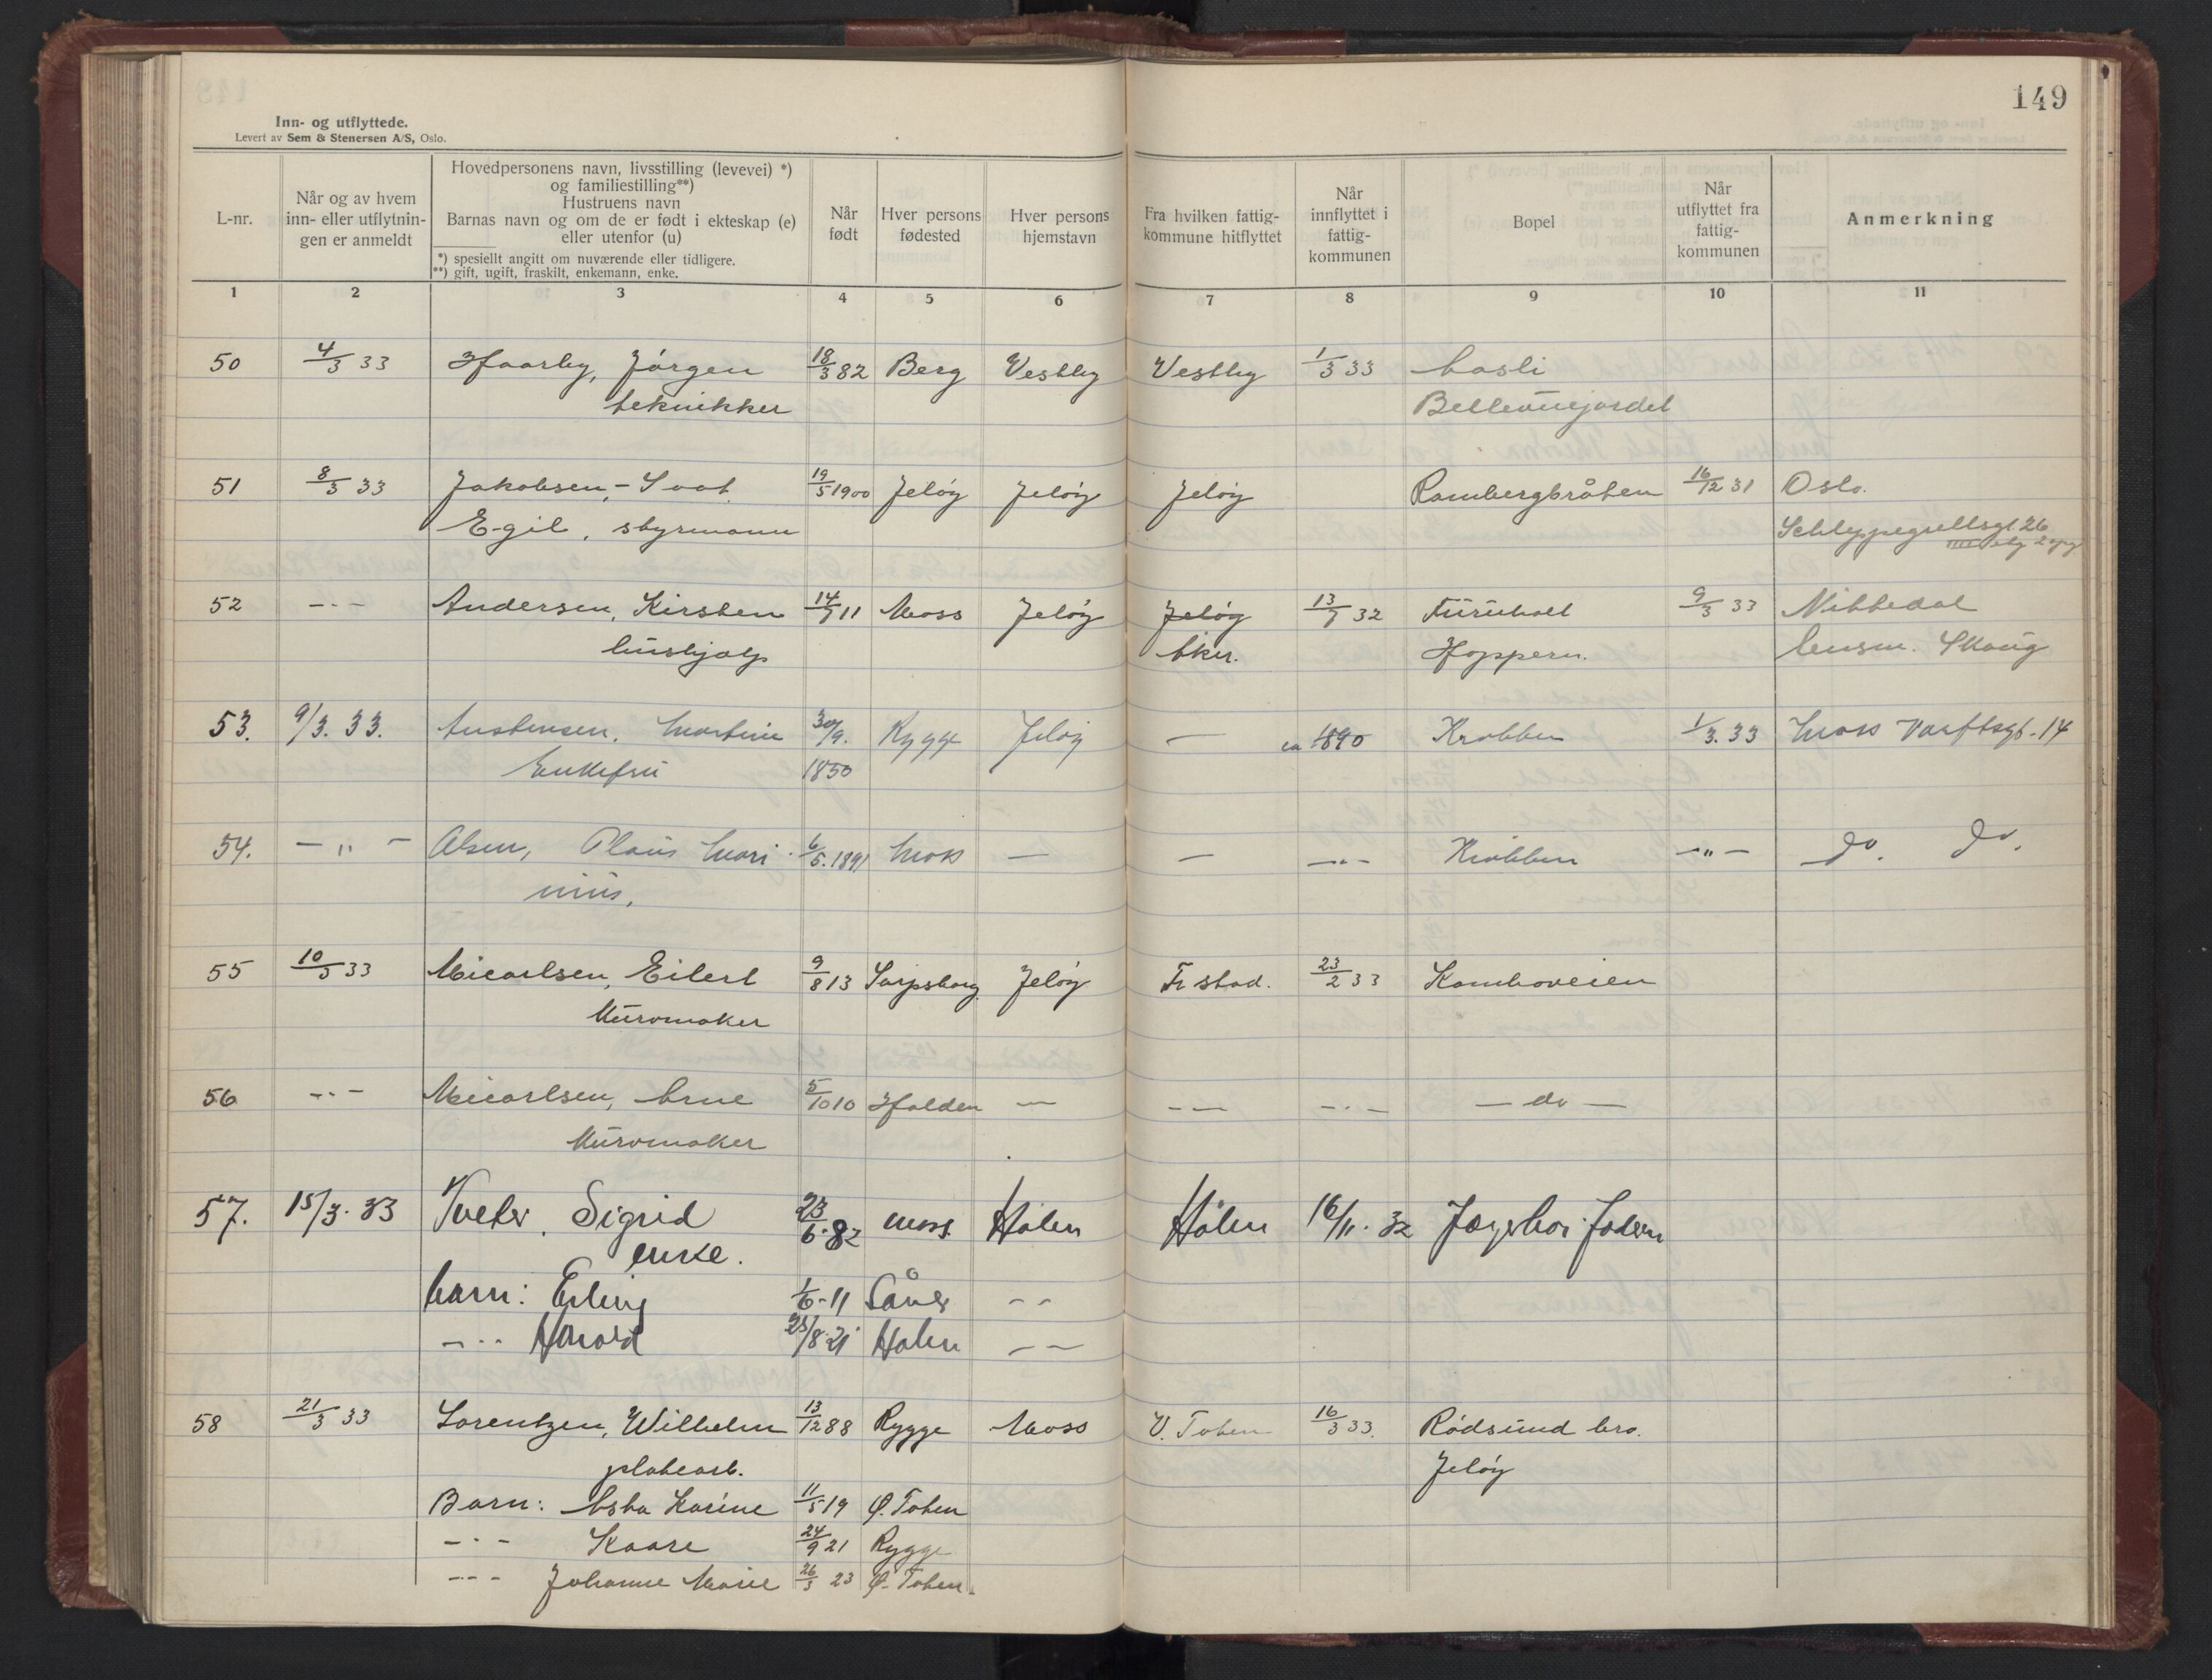 149
Inn- og utflyttede.
Levert av Sem & Stenersen A/S, Oslo.
L-nr.
Når og av hvem
inn- eller utflytnin-
gen er anmeldt
Hovedpersonens navn, livsstilling (levevei) *)
og familiestilling**)
Hustruens navn
Barnas navn og om de er født i ekteskap (e)
eller utenfor (u)
*) spesiellt angitt om nuværende eller tidligere.
**) gift, ugift, fraskilt, enkemann, enke.
Når
født
Hver persons
fødested
Hver persons
hjemstavn
Fra hvilken fattig-
kommune hitflyttet
Når
innflyttet i
fattig-
kommunen
Bopel
Når
utflyttet fra
fattig-
kommunen
Anmerkning
1 2 3 4 5 6 7 8 9 10 11
50 4/3 33 Haarby, Jørgen 18/3 82 Berg Vestby Vestby 1/3 33
teknikker Bellevuejordet
51 8/3 33 Jakobsen, 19/5 1900 Jeløy Jeløy Jeløy Rambergbråten 16/12 31 Oslo.
Egil, styrmann Schleppegrellsgt 26
52 -"- Andersen, Kirsten 14/7 11 Moss Jeløy Jeløy 13/7 32 Furuholt 9/3 33 Nittedal
hushjælp tkn. Hoppern. lensm. Skaug
53. 9/3. 33. Austensen, Martine 30/9. Rygge Jeløy — ca 1890 Krabben 1/3. 33 Moss Værftsgt. 14
Enkefru 1850
54. — " — Olsen, Olaus Mari- 6/5. 1891 Moss — — —"— Krabben —"— do. do.
nius.
55 10/3 33 Micarlsen, Eilert 9/8 13 Sarpsborg Jeløy Fr stad. 23/2 33 Kamboveien
Murmaker
56 -"- Micarlsen, Arne 5/10 10 Halden — — — -"- — do —
Murmaker
57. 15/3. 33 Tveter, Sigrid 23/6-82 Moss. Hølen Hølen 16/11. 32
enke.
barn: Erling 1/6-11 Såner - -
-"- Harald 25/8-21 Hølen — —
58 21/3 33 Lorentzen, Wilhelm 13/12 88 Rygge Moss V. Toten 16/3 33. Rødsund bro.
platearb. Jeløy
Barn: Asta Karine 11/5 19 Ø. Toten
-"- Kaare 24/9 21 Rygge
-"- Johanne Marie 26/3 23 Ø. Toten.